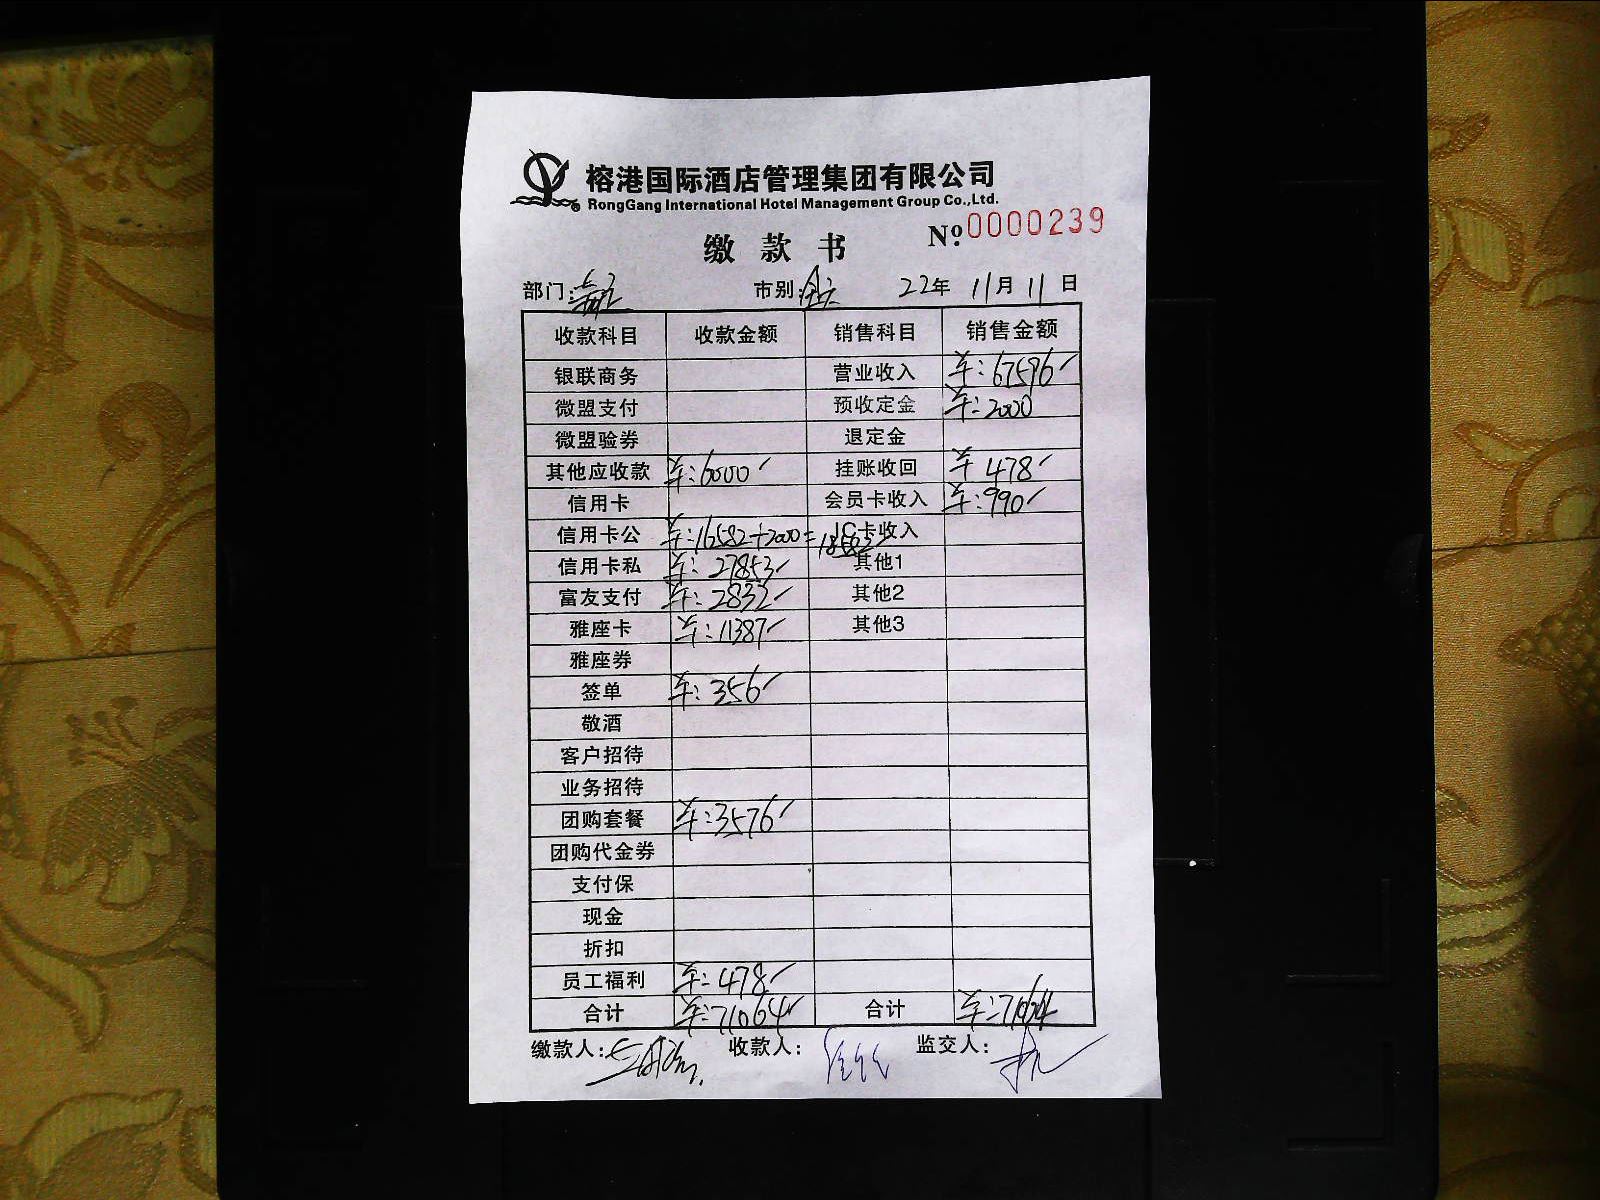 榕港国际酒店管理集团有限公司
RongGang International Hotel Management Group Co.,Ltd.
缴款书 № 0000239
部门: 市别: 22年 11月 11日
收款科目 收款金额 销售科目 销售金额
银联商务 营业收入 ¥:67596
微盟支付 预收定金 ¥:2000
微盟验券 退定金
其他应收款 ¥:6000 挂账收回 ¥ 478
信用卡 会员卡收入 ¥:990
信用卡公 ¥:16582+2000=18582 IC卡收入
信用卡私 ¥:27853 其他1
富友支付 ¥:2832 其他2
雅座卡 ¥:11387 其他3
雅座券
签单 ¥:356
敬酒
客户招待
业务招待
团购套餐 ¥:3576
团购代金券
支付保
现金
折扣
员工福利 ¥:478
合计 ¥:71064 合计 ¥:71064
缴款人: 收款人: 监交人: